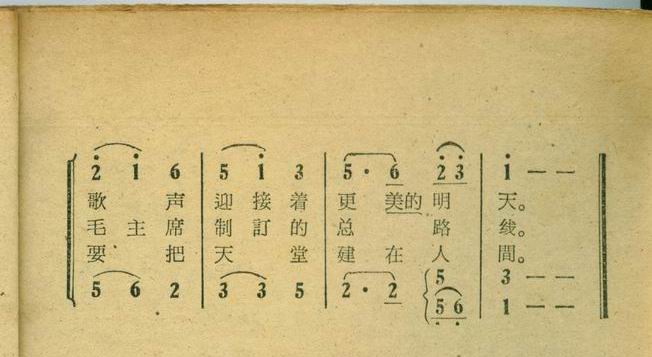 2̇ 1̇ 6 | 5 1̇ 3 | 5 · 6 2̇ 3̇ | 1̇ — —
歌 声 迎 接 着 更 美的 明 天。
毛 主 席 制 訂 的 总 路 綫。
要 把 天 堂 建 在 人 間。
5 6 2 | 3 3 5 | 2 · 2 5 | 3 — —
5̣ 6̣ | 1 — —